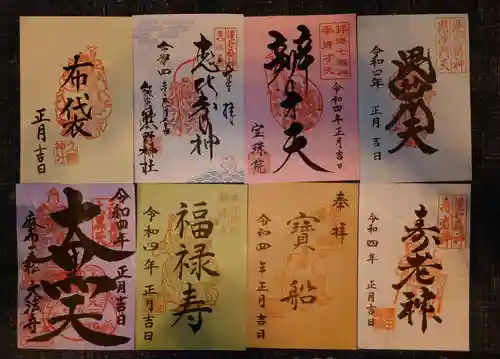 布袋
正月吉日
久國神社
奉拝
恵比寿神
令和四年正月吉日
飯倉熊野神社
港七福神
奉拝
辨才天
令和四年正月吉日
宝珠院
令和四年
正月
吉日
毘沙門天
令和四年
正月吉日
大黒天
麻布一本松
大法寺
福禄寿
令和四年
正月吉日
奉拝
寶船
令和四年
正月吉日
寿老神
令和四年
正月吉日